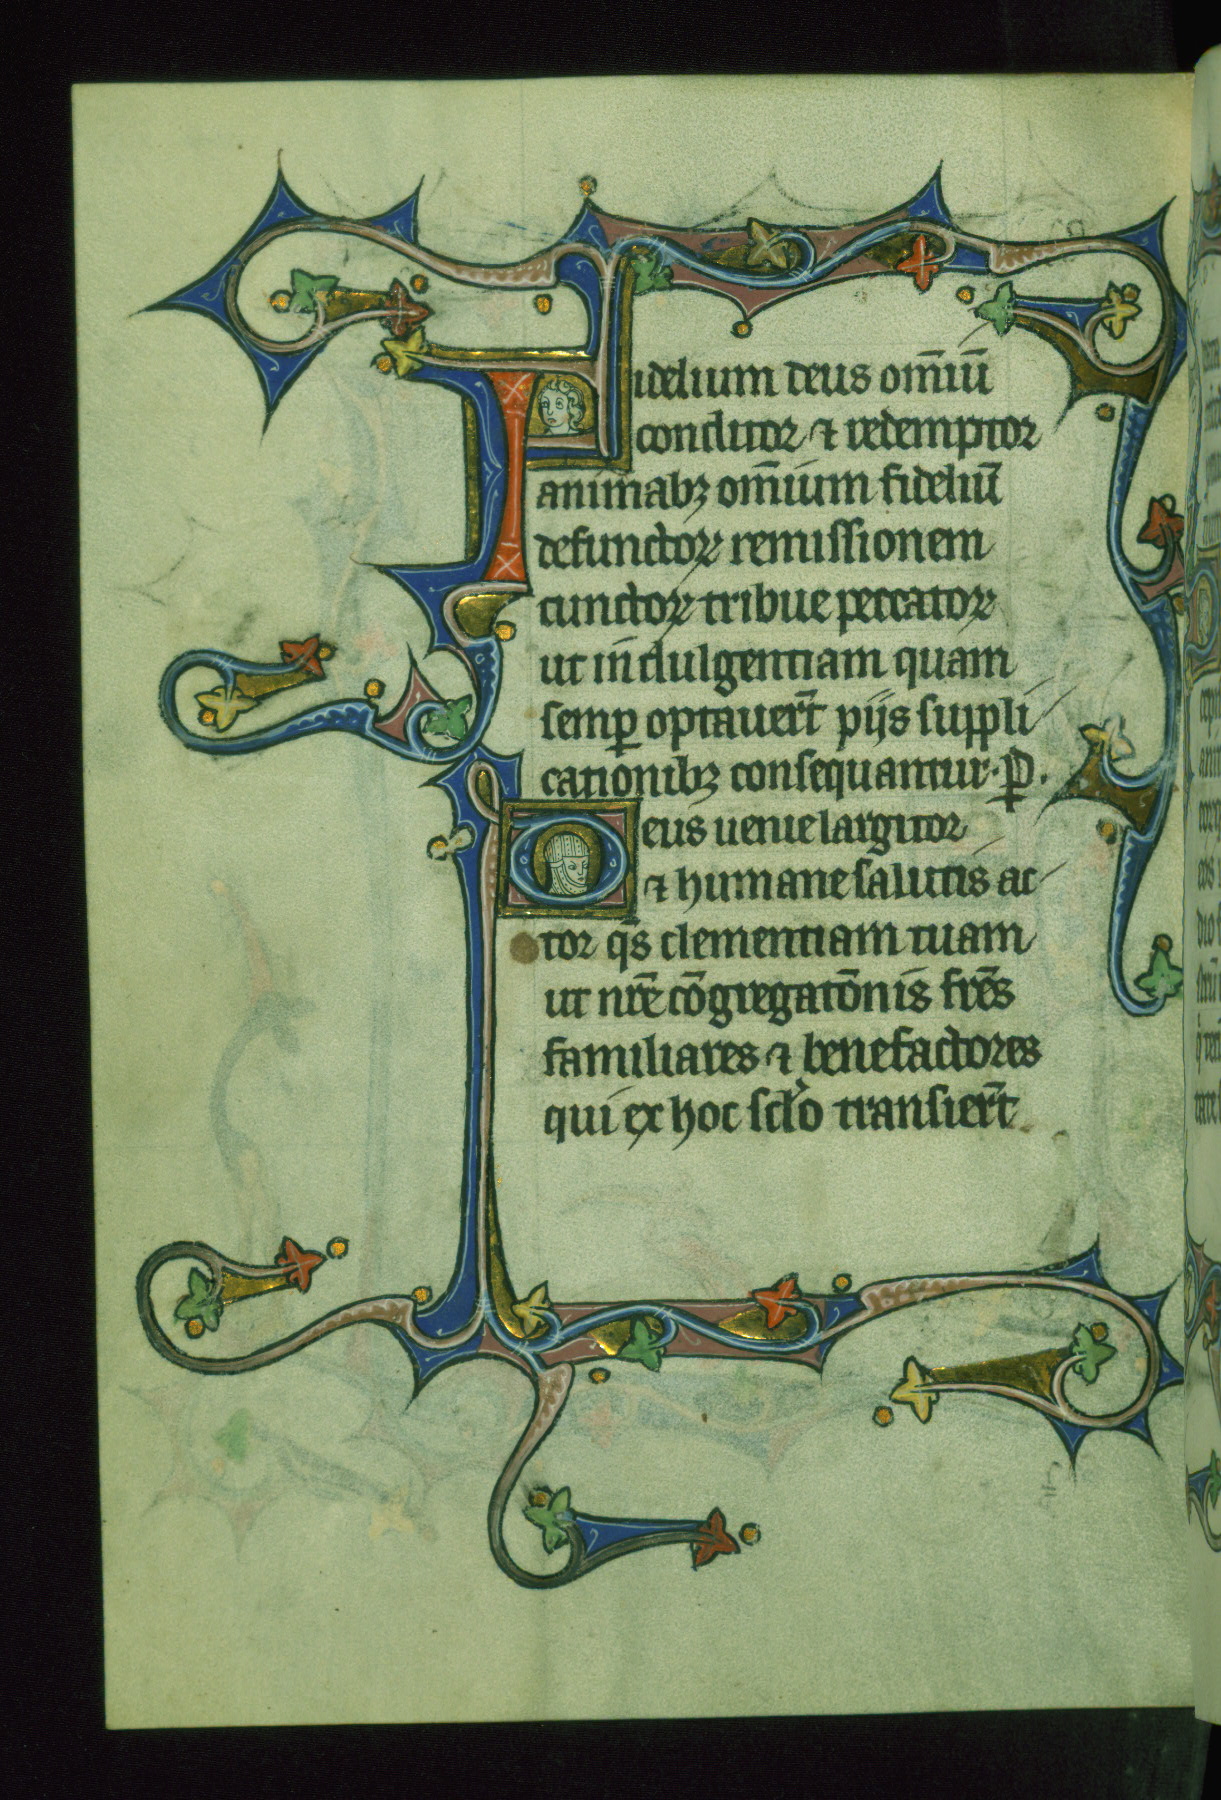 Fidelium deus om̄iū
conditor ⁊ redemptor
animabꝫ om̄ium fideliū
defunctoꝝ remissionem
cunctoꝝ tribue peccatoꝝ
ut indulgentiam quam
semꝑ optauer̄t pijs suppli
cationibꝫ consequantur. P̄.
Deus uenie largitor
⁊ humane salutis ac
tor q̄s clementiam tuam
ut nr̄e cōgregatōnis fr̄es
familiares ⁊ benefactores
qui ex hoc sc̄lo transier̄t